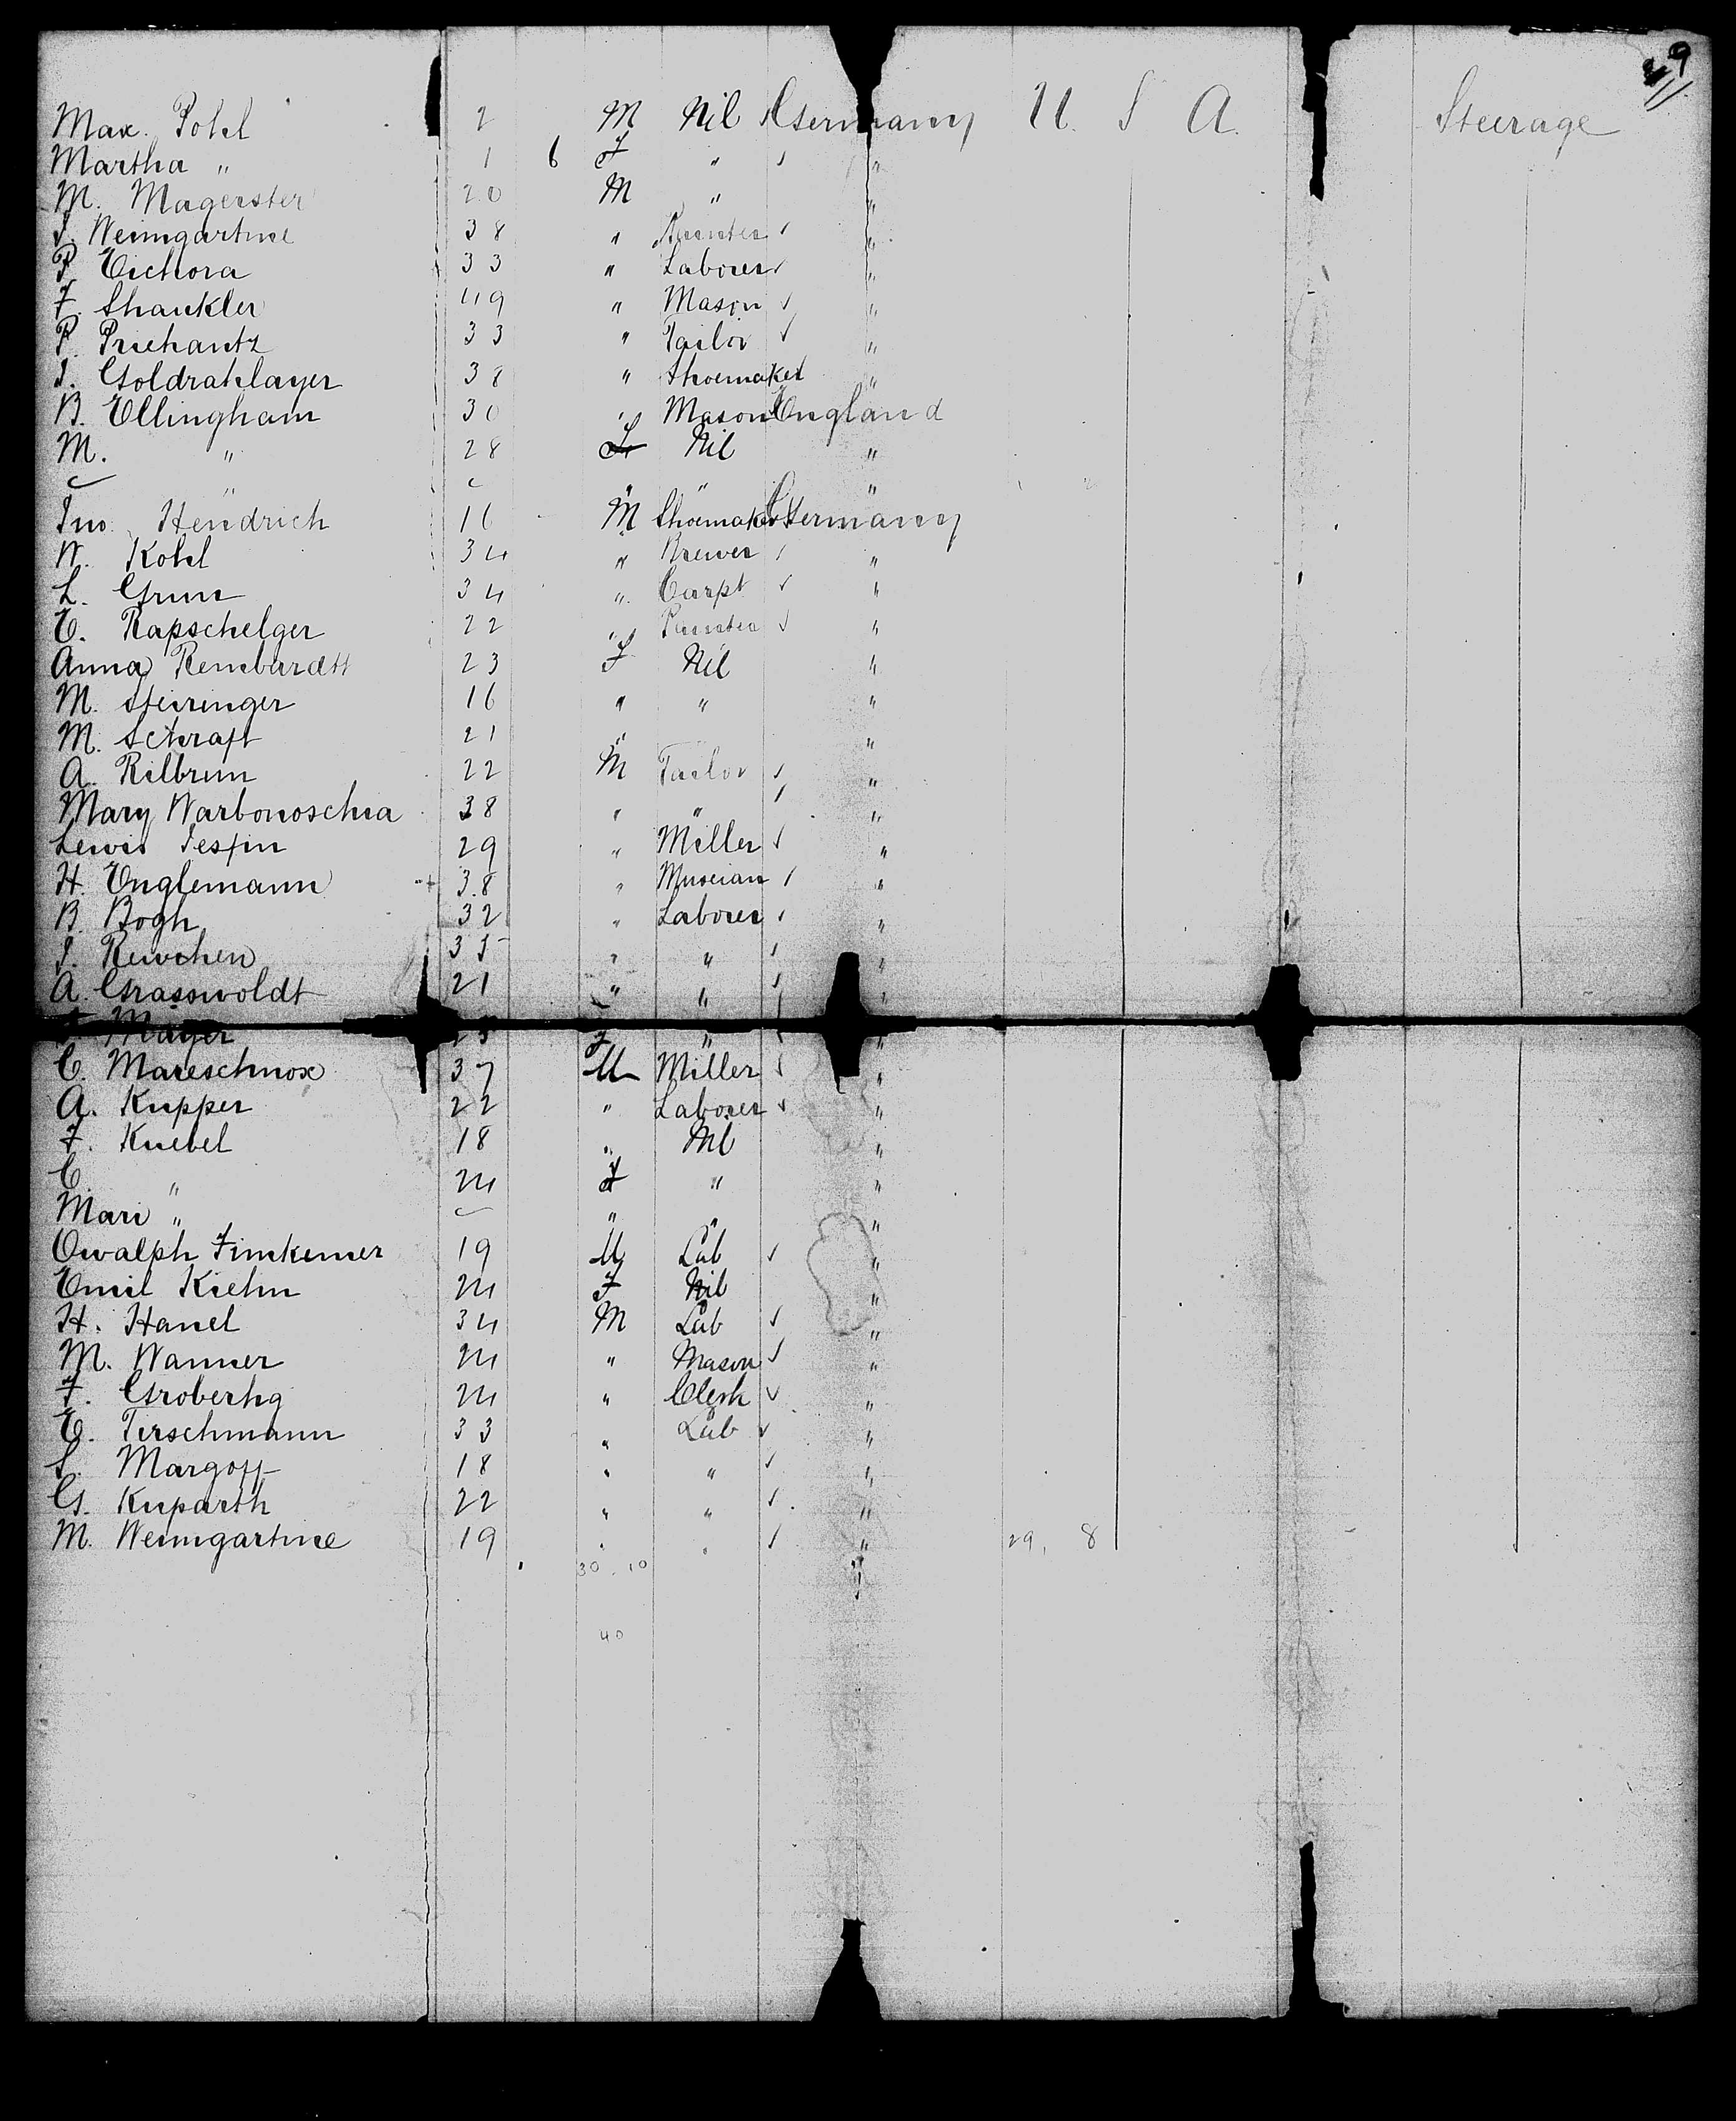 9
Max. Pohl 2 M Nil Germany U. S A. Steerage
Martha " 1 6 F " "
M. Magerster 20 M " "
J. Weimgartine 38 " Painter "
P. Eichora 33 " Laborer "
F. Shankler 49 " Mason "
P. Priehantz 33 " Tailor "
J. Goldrahlayer 38 " Shoemaker "
B. Ellingham 30 " Mason England
M. " 28 F Nil "
" " " "
Jno. Hendrich 16 M Shoemaker Germany
W. Kohl 34 " Brewer "
L. Grun 34 " Carpt "
E. Rapschelger 22 " Painter "
Anna Rembardtt 23 F Nil "
M. Steiringer 16 " " "
M. Schraft 21 " "
A. Rilbrim 22 M Tailor "
Mary Warbonoschia 38 " " "
Lewis Jesfin 29 " Miller "
H. Englemann 38 " Muscian "
B. Bogh 32 " Laborer "
J. Reuchen 35 " " "
A. Grasswoldt 21 " " "
Mayer F " "
C. Mareschnox 37 M Miller "
A. Kupper 22 " Laborer "
F. Knebel 18 " Nil "
C. " 24 F " "
Mari " " " "
Owalph Finkemer 19 M Lab "
Emil Kiehn 24 F Nil "
H. Hanel 34 M Lab "
M. Wanner 24 " Mason "
F. Groberhg 24 " Clerk "
E. Tirschmann 33 " Lab "
S. Margoff 18 " " "
G. Kuparth 22 " " "
M. Weimgartine 19 " " " 29, 8
30. 10
40